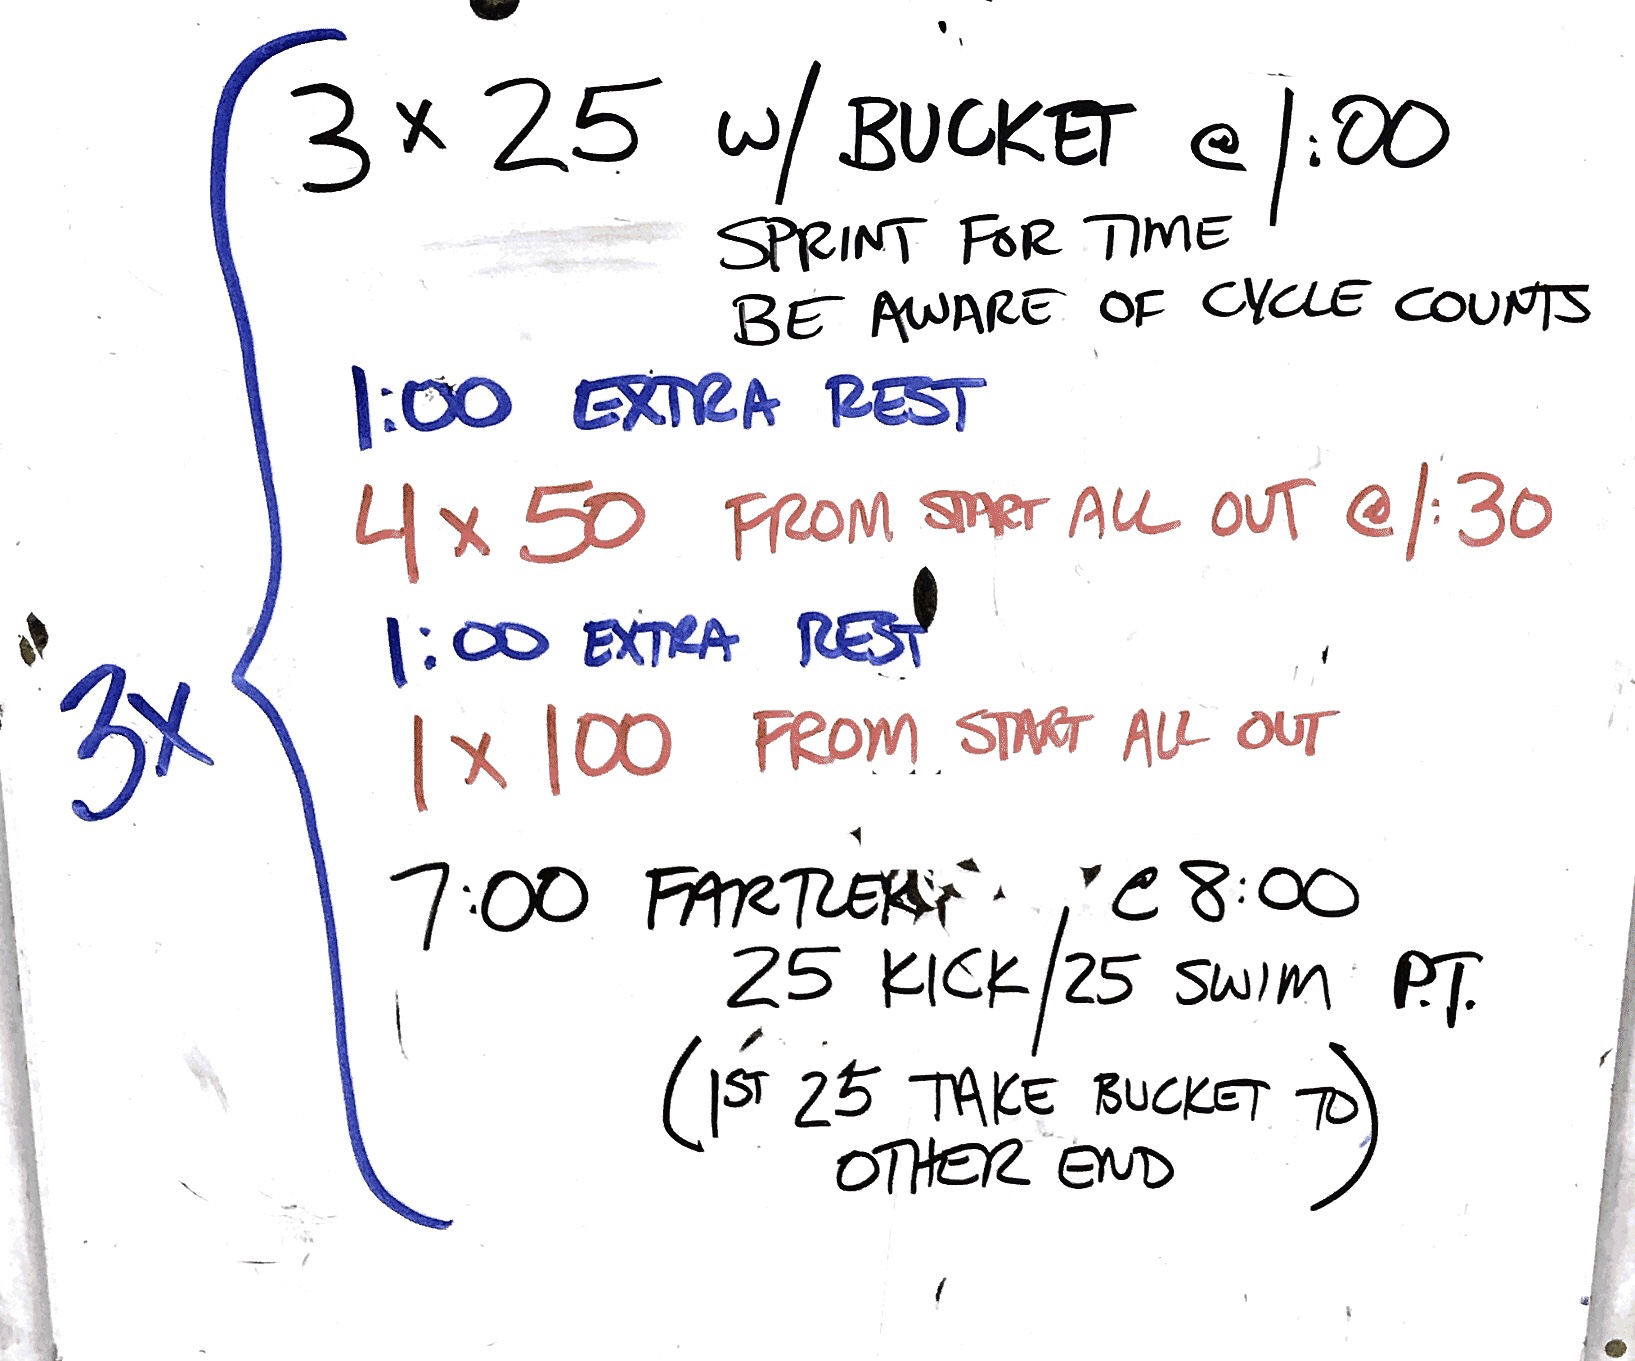 3 x 25 w/ BUCKET @ 1:00
SPRINT FOR TIME
BE AWARE OF CYCLE COUNTS
1:00 EXTRA REST
4 x 50 FROM START ALL OUT @ 1:30
1:00 EXTRA REST
3x
1 x 100 FROM START ALL OUT
7:00 FARTLEK @ 8:00
25 KICK/25 SWIM P.T.
(1ST 25 TAKE BUCKET TO
OTHER END)